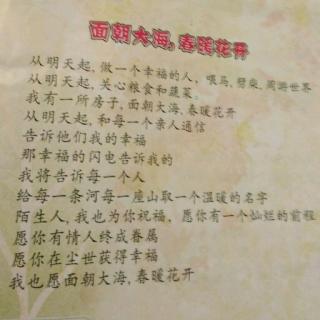 面朝大海,春暖花开
从明天起,做一个幸福的人,喂马,劈柴,周游世界
从明天起,关心粮食和蔬菜。
我有一所房子,面朝大海,春暖花开
从明天起,和每一个亲人通信
告诉他们我的幸福
那幸福的闪电告诉我的
我将告诉每一个人
给每一条河每一座山取一个温暖的名字
陌生人,我也为你祝福,愿你有一个灿烂的前程
愿你有情人终成眷属
愿你在尘世获得幸福
我也愿面朝大海,春暖花开